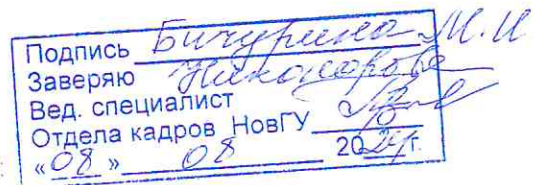 Подпись Бичурина М.И
Заверяю Никанорова
Вед. специалист
Отдела кадров НовГУ
«08» 08 2024г.